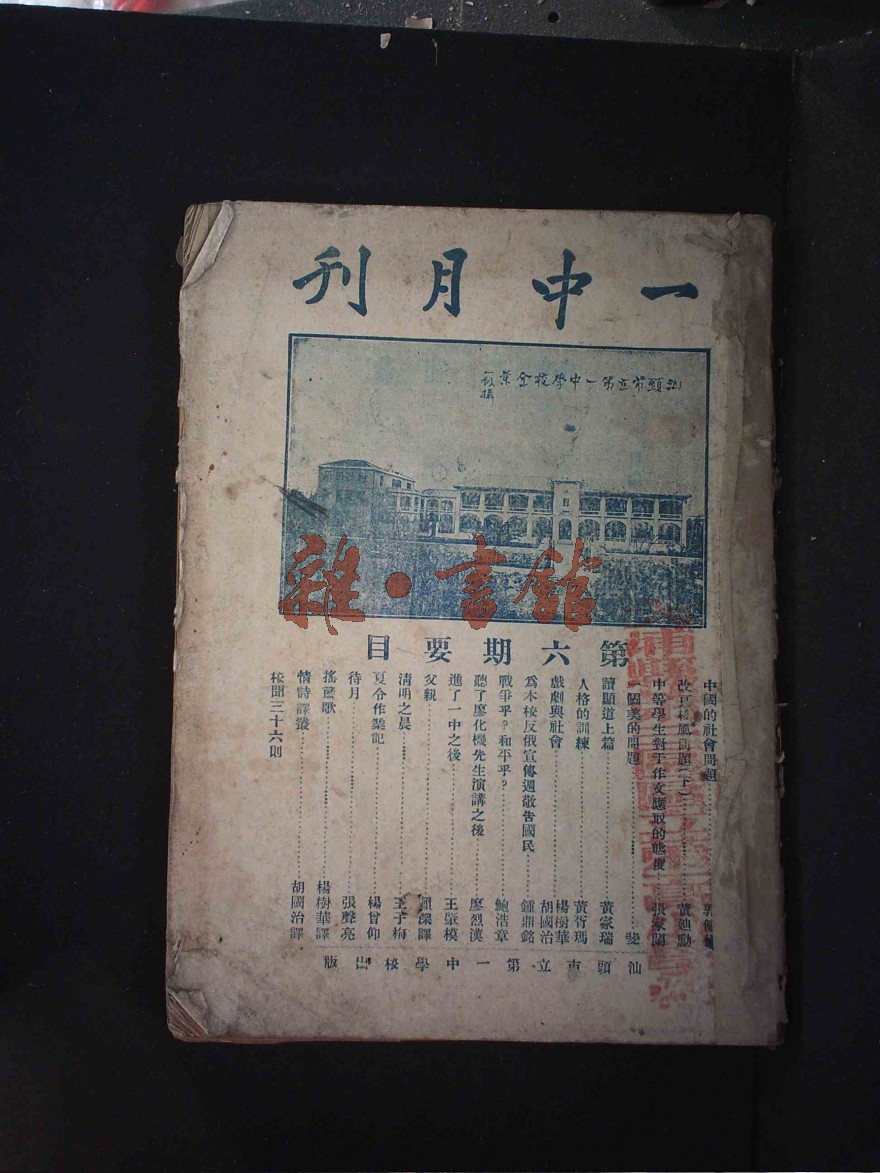 一中月刊
汕頭市立第一中學校全景
第六期要目
中國的社會問題
中等學生對于作文應取的態度 張家蘭
一個美的問題 斐
讀顯道上篇 黃家瑞
人格的訓練 黃胥瑪
戲劇與社會 楊樹華 胡國治
為本校反俄宣傳週敬告國民 鍾鼎銘
戰爭乎？和平乎？ 鮑浩章
聽了廖化機先生演講之後 廖烈漢
進了一中之後 王肇模
父親
清明之晨 王子梅
夏令作業記 楊曾仰
待月 張聲亮
搖籃歌 楊樹華譯
情詩譯叢 胡國治譯
校聞三十六則
汕頭市立第一中學校出版
雜·書館